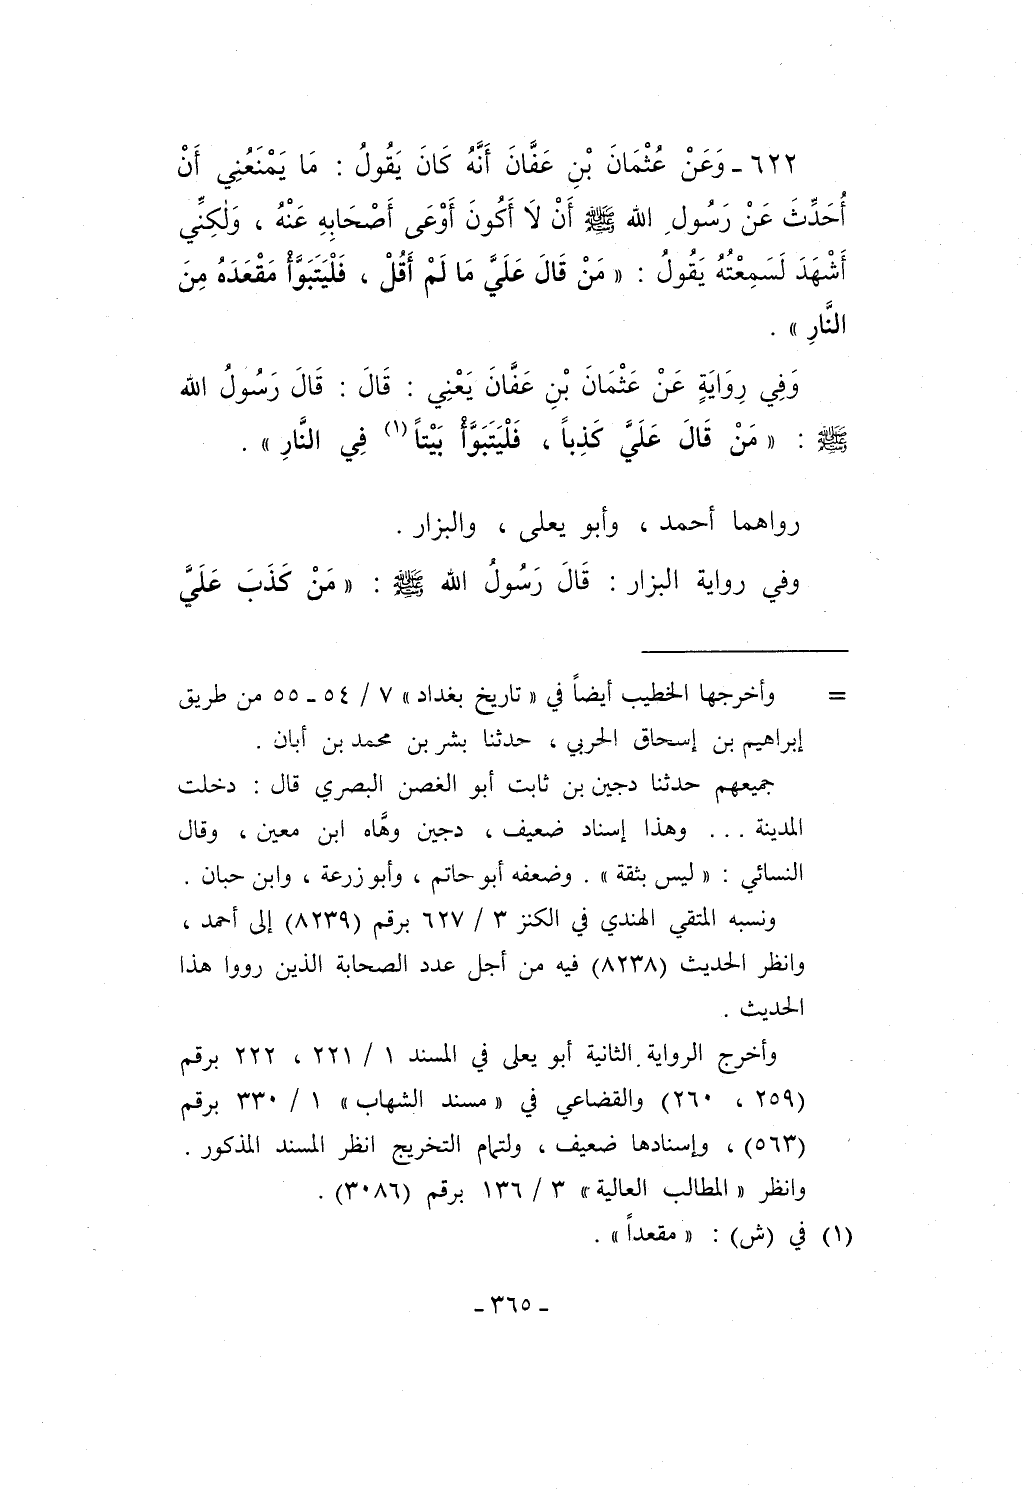 ٦٢٢ ـ وَعَنْ عُثْمَانَ بْنِ عَفَّانَ أَنَّهُ كَانَ يَقُولُ : مَا يَمْنَعُنِي أَنْ
أُحَدِّثَ عَنْ رَسُولِ الله ﷺ أَنْ لَا أَكُونَ أَوْعَى أَصْحَابِهِ عَنْهُ ، وَلٰكِنِّي
أَشْهَدَ لَسَمِعْتُهُ يَقُولُ : « مَنْ قَالَ عَلَيَّ مَا لَمْ أَقُلْ ، فَلْيَتَبَوَّأْ مَقْعَدَهُ مِنَ
النَّارِ » .
وَفِي رِوَايَةٍ عَنْ عَثْمَانَ بْنِ عَفَّانَ يَعْنِي : قَالَ : قَالَ رَسُولُ الله
ﷺ : « مَنْ قَالَ عَلَيَّ كَذِباً ، فَلْيَتَبَوَّأْ بَيْتاً (١) فِي النَّارِ » .
رواهما أحمد ، وأبو يعلى ، والبزار .
وفي رواية البزار : قَالَ رَسُولُ الله ﷺ : « مَنْ كَذَبَ عَلَيَّ
= وأخرجها الخطيب أيضاً في « تاريخ بغداد » ٧ / ٥٤ ـ ٥٥ من طريق
إبراهيم بن إسحاق الحربي ، حدثنا بشر بن محمد بن أبان .
جميعهم حدثنا دجين بن ثابت أبو الغصن البصري قال : دخلت
المدينة ... وهذا إسناد ضعيف ، دجين وهَّاه ابن معين ، وقال
النسائي : « ليس بثقة » . وضعفه أبو حاتم ، وأبو زرعة ، وابن حبان .
ونسبه المتقي الهندي في الكنز ٣ / ٦٢٧ برقم (٨٢٣٩) إلى أحمد ،
وانظر الحديث (٨٢٣٨) فيه من أجل عدد الصحابة الذين رووا هذا
الحديث .
وأخرج الرواية الثانية أبو يعلى في المسند ١ / ٢٢١ ، ٢٢٢ برقم
(٢٥٩ ، ٢٦٠) والقضاعي في « مسند الشهاب » ١ / ٣٣٠ برقم
(٥٦٣) ، وإسنادها ضعيف ، ولتمام التخريج انظر المسند المذكور .
وانظر « المطالب العالية » ٣ / ١٣٦ برقم (٣٠٨٦) .
(١) في (ش) : « مقعداً » .
ـ ٣٦٥ ـ